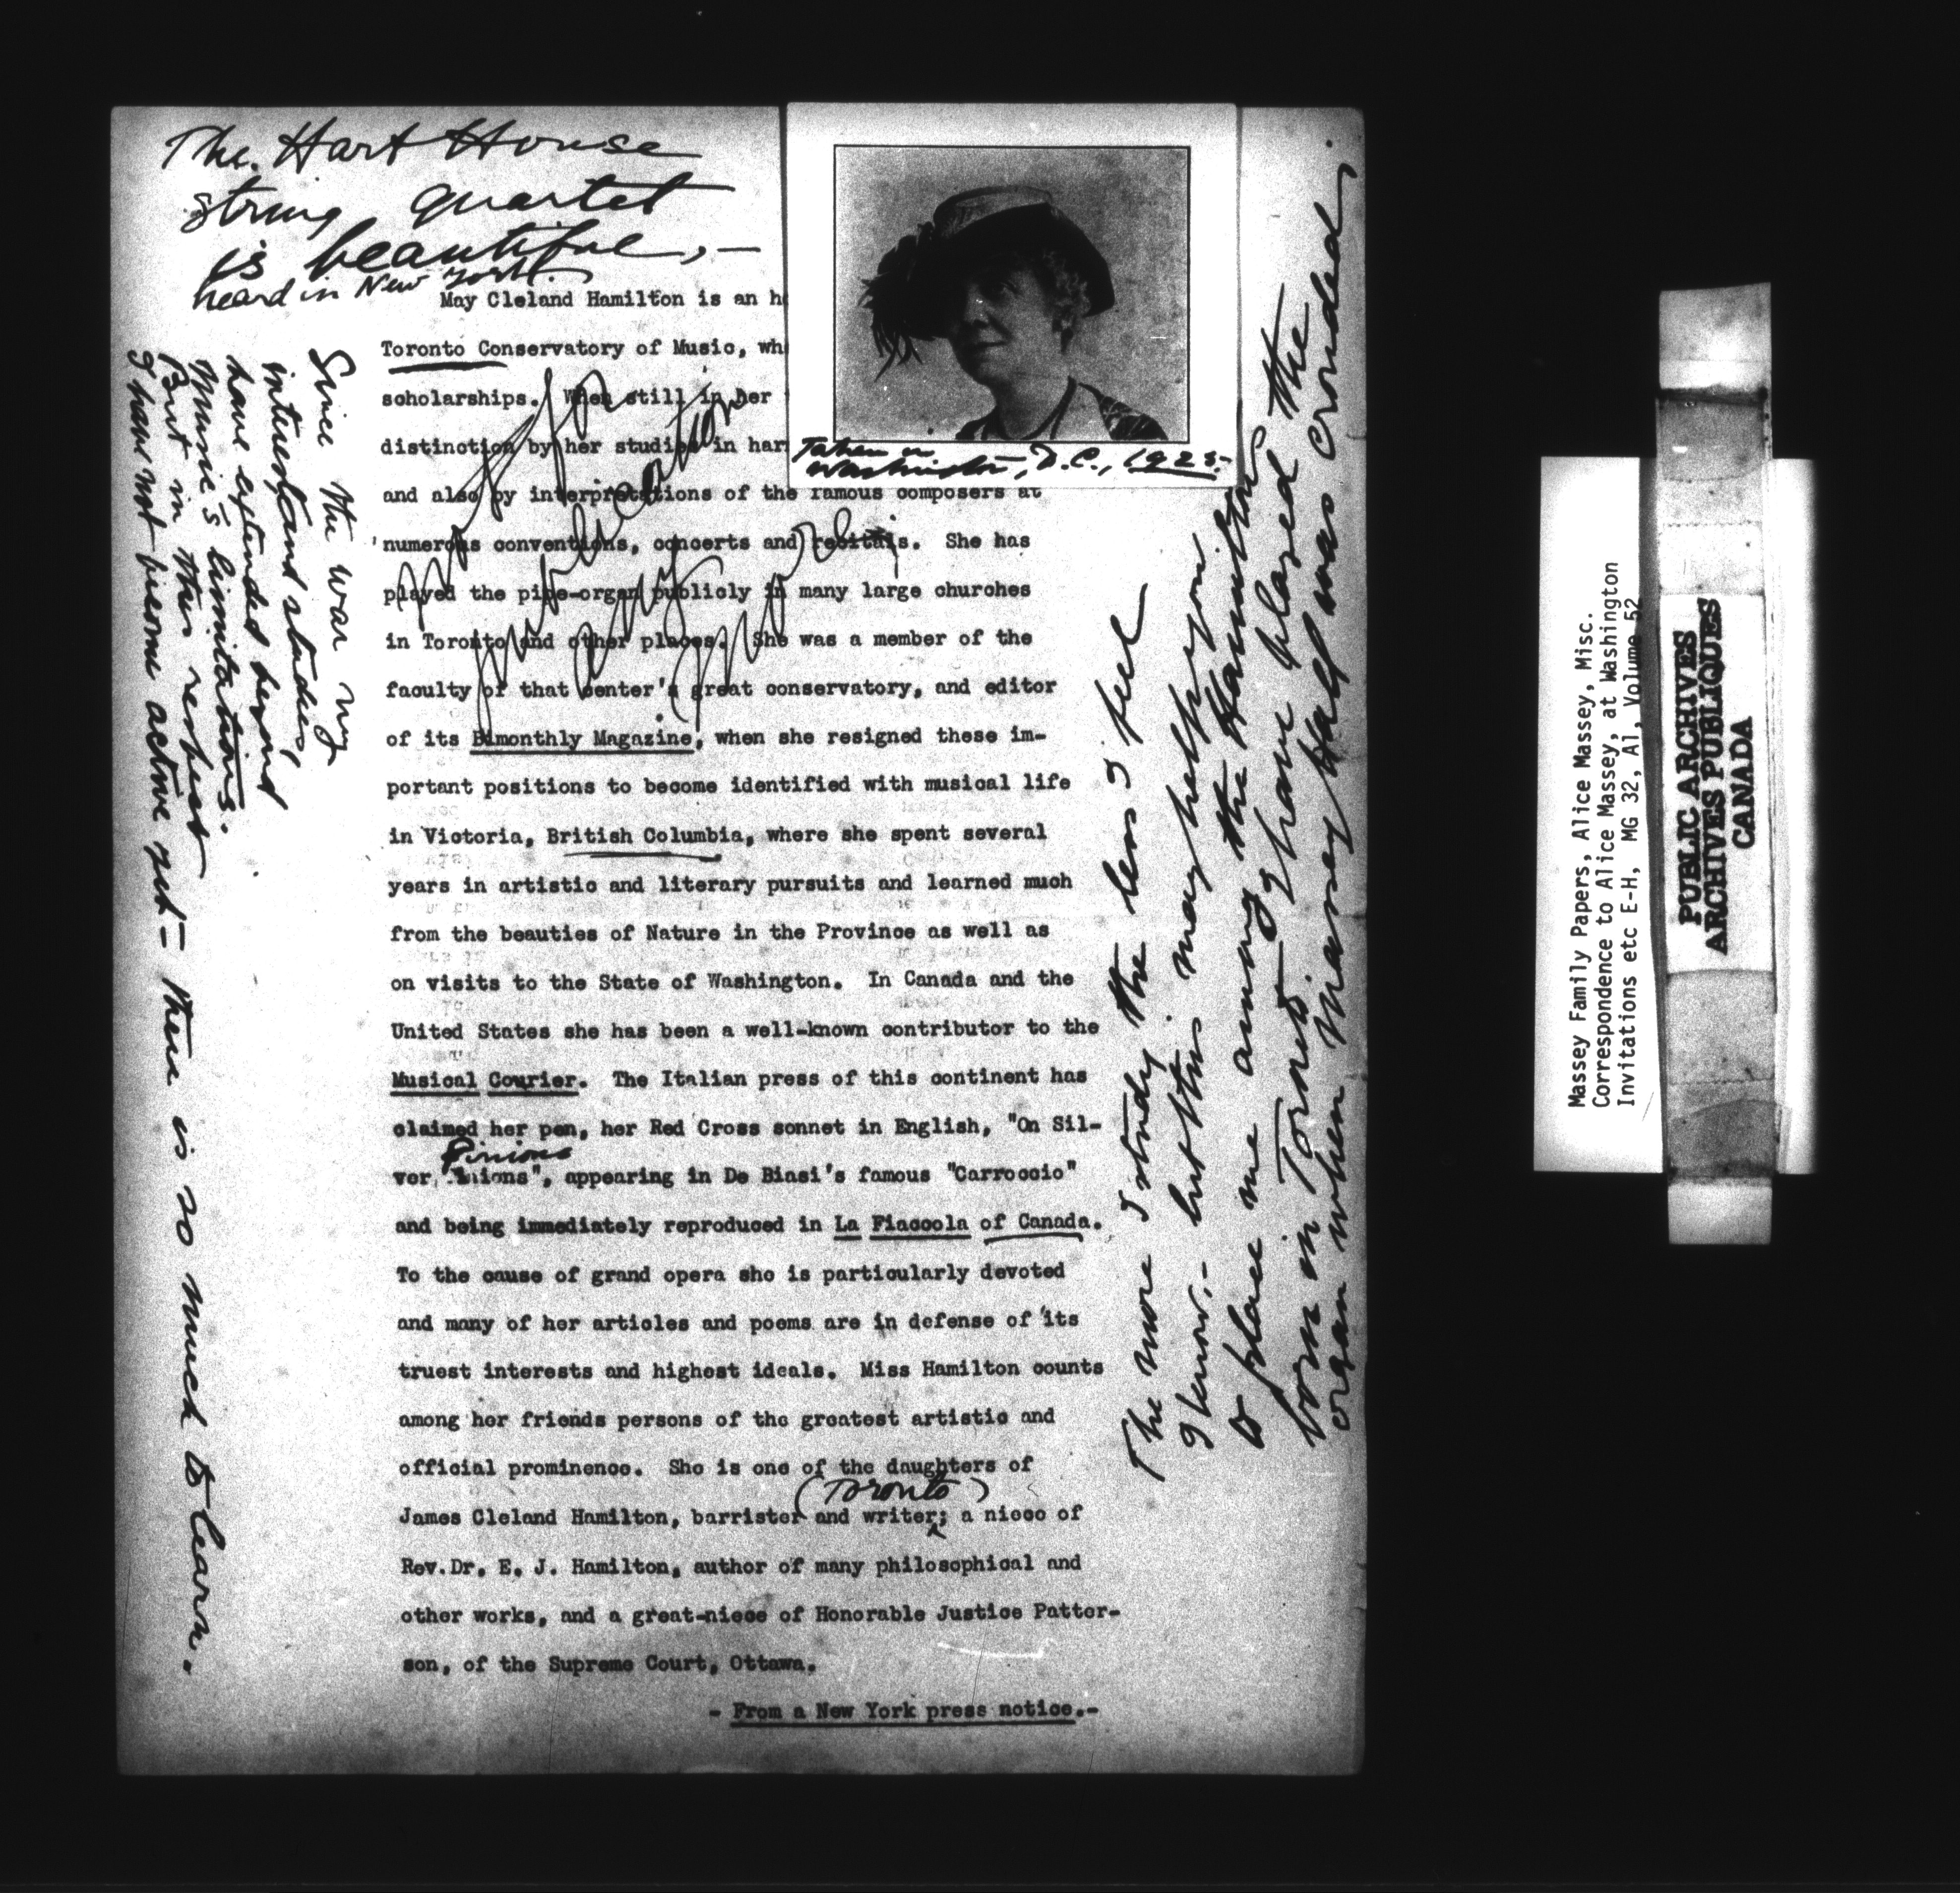 The Hart House
string quartet
is beautiful,—
heard in New York.
Taken in
Washington, D.C., 1925.
May Cleland Hamilton is an h
Toronto Conservatory of Music, wh
scholarships. When still in her
distinction by her studies in har
and also by interpretations of the famous composers at
numerous conventions, concerts and recitals. She has
played the pipe-organ publicly in many large churches
in Toronto and other places. She was a member of the
faculty of that center's great conservatory, and editor
of its Bimonthly Magazine, when she resigned these im-
portant positions to become identified with musical life
in Victoria, British Columbia, where she spent several
years in artistic and literary pursuits and learned much
from the beauties of Nature in the Province as well as
on visits to the State of Washington. In Canada and the
United States she has been a well-known contributor to the
Musical Courier. The Italian press of this continent has
claimed her pen, her Red Cross sonnet in English, "On Sil-
Pinions
ver inions", appearing in De Biasi's famous "Carroccio"
and being immediately reproduced in La Fiaccola of Canada.
To the cause of grand opera she is particularly devoted
and many of her articles and poems are in defense of its
truest interests and highest ideals. Miss Hamilton counts
among her friends persons of the greatest artistic and
official prominence. She is one of the daughters of
(Toronto)
James Cleland Hamilton, barrister and writer; a niece of
Rev.Dr. E. J. Hamilton, author of many philosophical and
other works, and a great-niece of Honorable Justice Patter-
son, of the Supreme Court, Ottawa.
- From a New York press notice.-
not for
publication
any more
Since the war my
interest and studies
have extended beyond
Music's limitations.
But in this respect
I have not become active yet — there is so much to learn.
The more I study the less I feel
I know.- but this may help you
to place me among the Hamiltons
born in Toronto. I have played the
organ when Massey Hall was crowded.
Massey Family Papers, Alice Massey, Misc.
Correspondence to Alice Massey, at Washington
Invitations etc E-H, MG 32, A1, Volume 52
PUBLIC ARCHIVES
ARCHIVES PUBLIQUES
CANADA